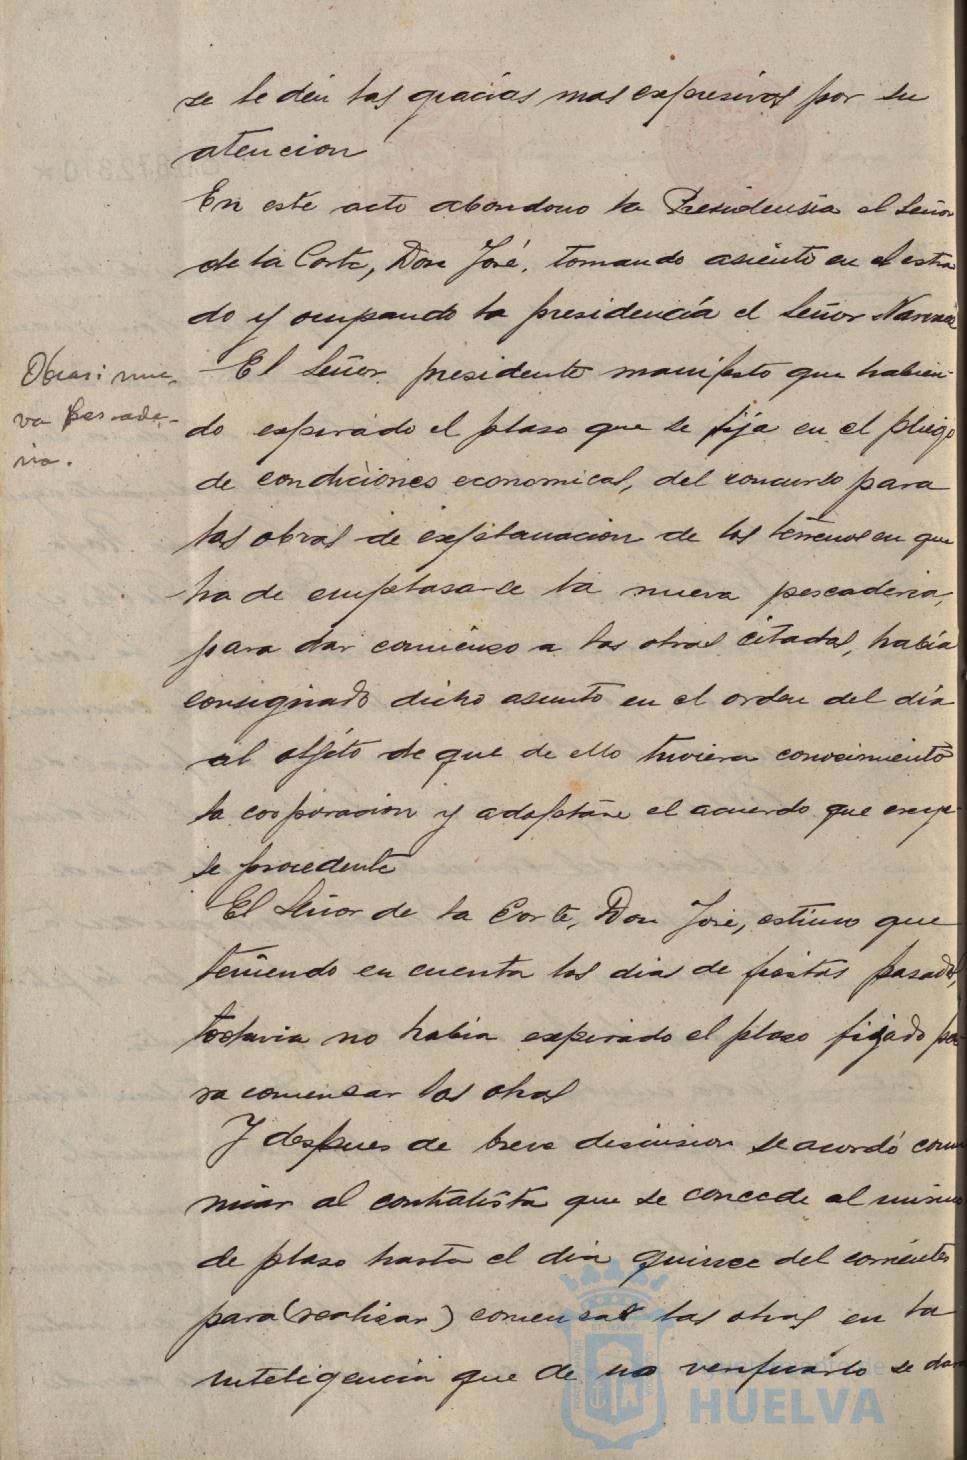 se le dén las gracias mas expresivas por su
atencion
En este acto abandono la Presidensia el Señor
de la Corte, Don José, tomando asiento en el estra
do y ocupando la presidencia el Señor Narvaez
Obras: nue-
va pescade-
ria.
El Señor presidente manifesto que habien-
do expirado el plaso que se fija en el pliego
de condiciones economicas, del concurso para
las obras de explanacion de los terrenos en que
ha de emplasarse la nueva pescaderia,
para dar comienzo a las obras citadas, había
consignado dicho asunto en el orden del día
al objeto de que de ello tuviera conocimiento
la corporacion y adoptare el acuerdo que creye-
se procedente
El Señor de la Corte, Don José, estimo que
teniendo en cuenta los dias de fiestas pasados,
todavia no habia expirado el plaso fijado pa
ra comensar las obras
Y despues de breve discusion se acordó conmi
nar al contratista que se concede al mismo
de plaso hasta el dia quince del corriente
para (realizar) comensar las obras en la
inteligencia que de no verificarlo se dara
HUELVA